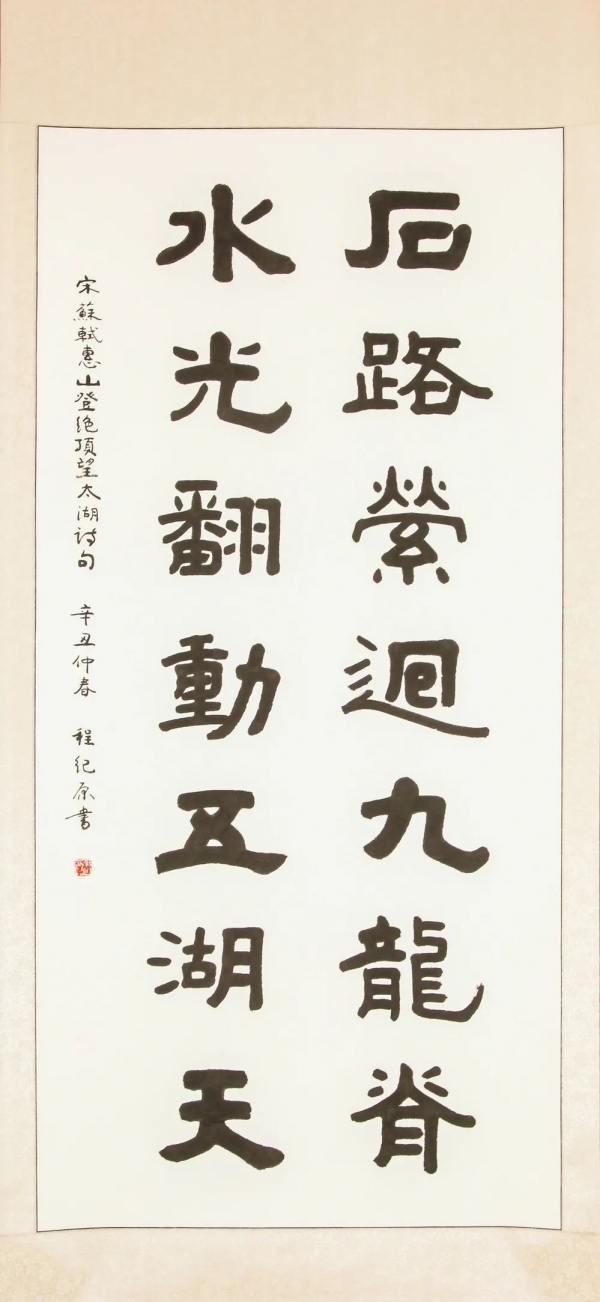 石路縈迴九龍脊
水光翻動五湖天
宋蘇軾惠山登绝頂望太湖诗句 辛丑仲春 程纪原書